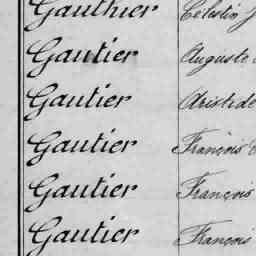 Gauthier Célestin
Gautier Auguste
Gautier Aristide
Gautier François
Gautier François
Gautier François